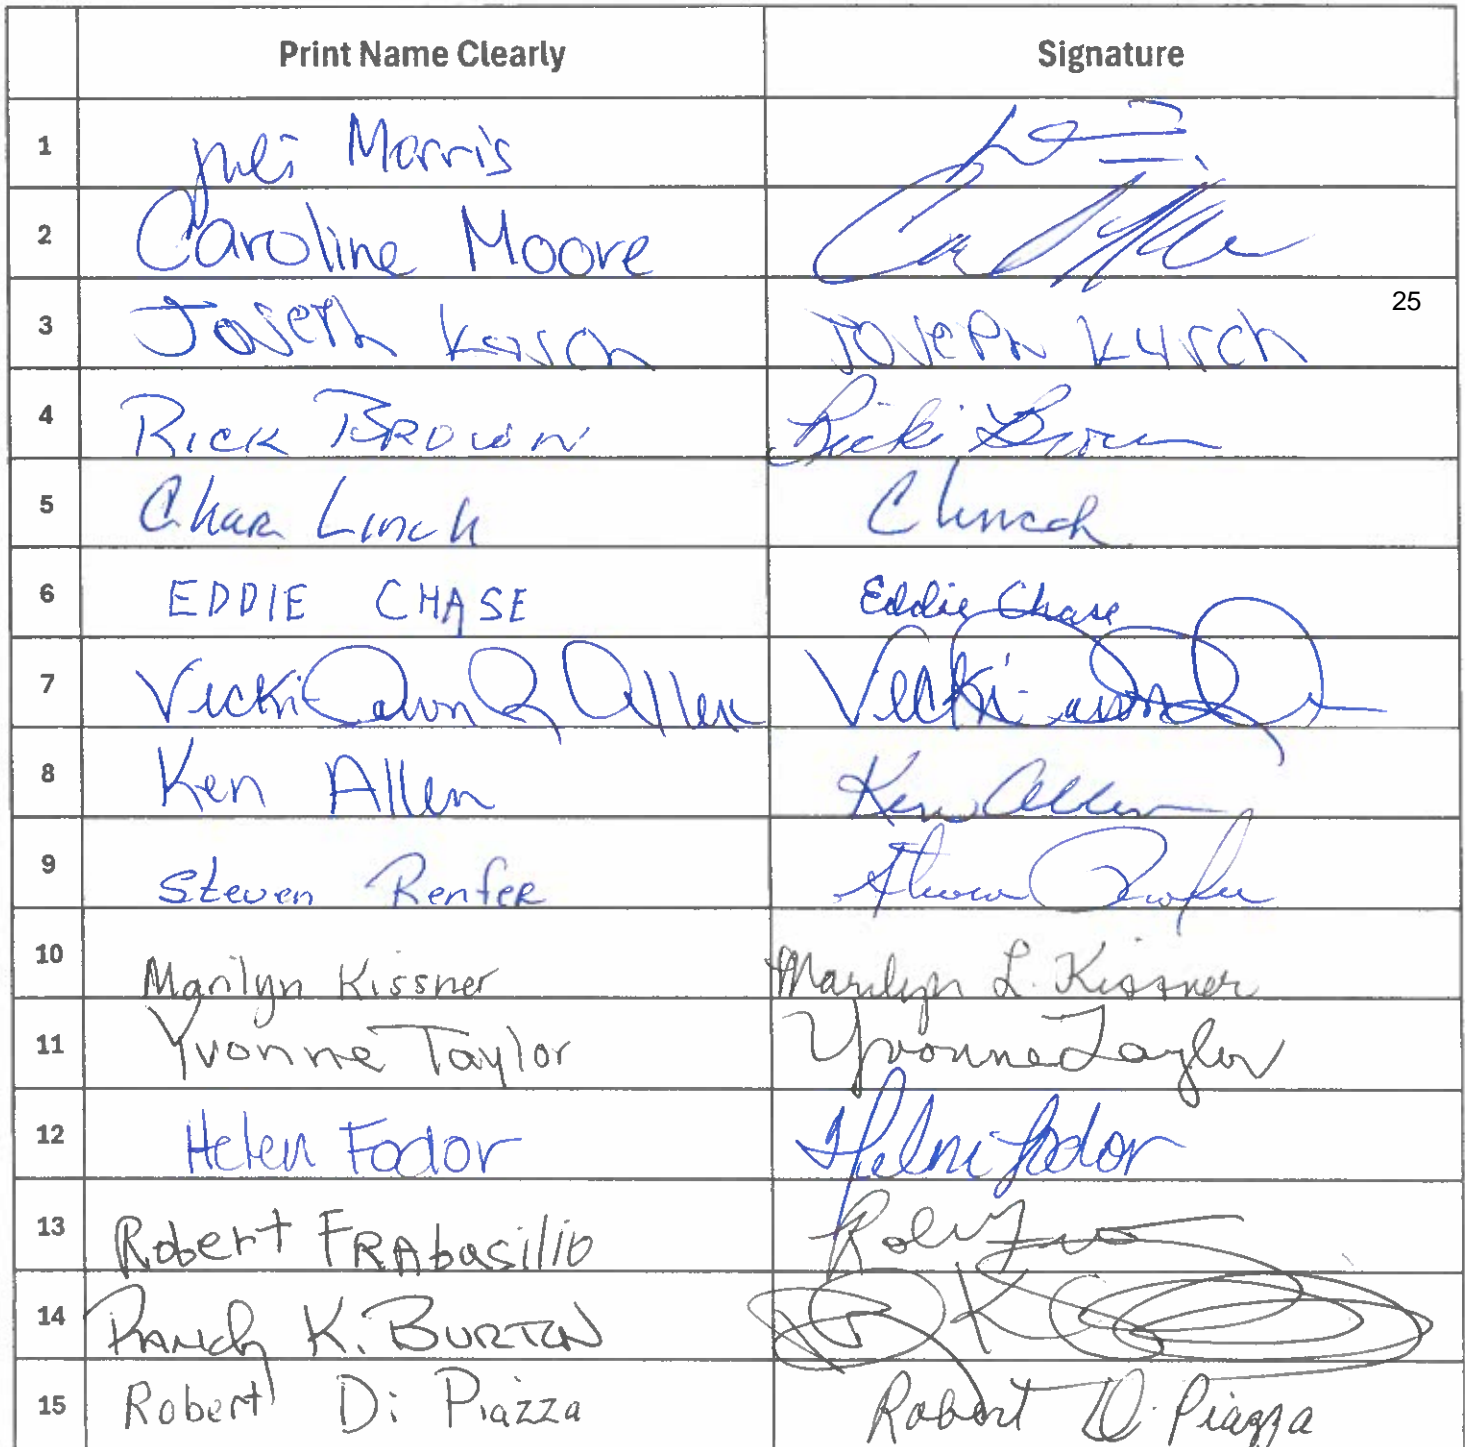 Print Name Clearly Signature
1 Juli Morris
2 Caroline Moore
25
3 Joseph
4 Rick Brown Rick Brown
5 Char Linch C Linch
6 EDDIE CHASE Eddie Chase
7 Vicki Dawn R Allen Vicki Dawn
8 Ken Allen Ken Allen
9 Steven Renfer Steven Renfer
10 Marilyn Kissner Marilyn L. Kissner
11 Yvonne Taylor Yvonne Taylor
12 Helen Fodor Helen Fodor
13 Robert FRAbasilio
14 Randy K. BURTON
15 Robert Di Piazza Robert Di Piazza